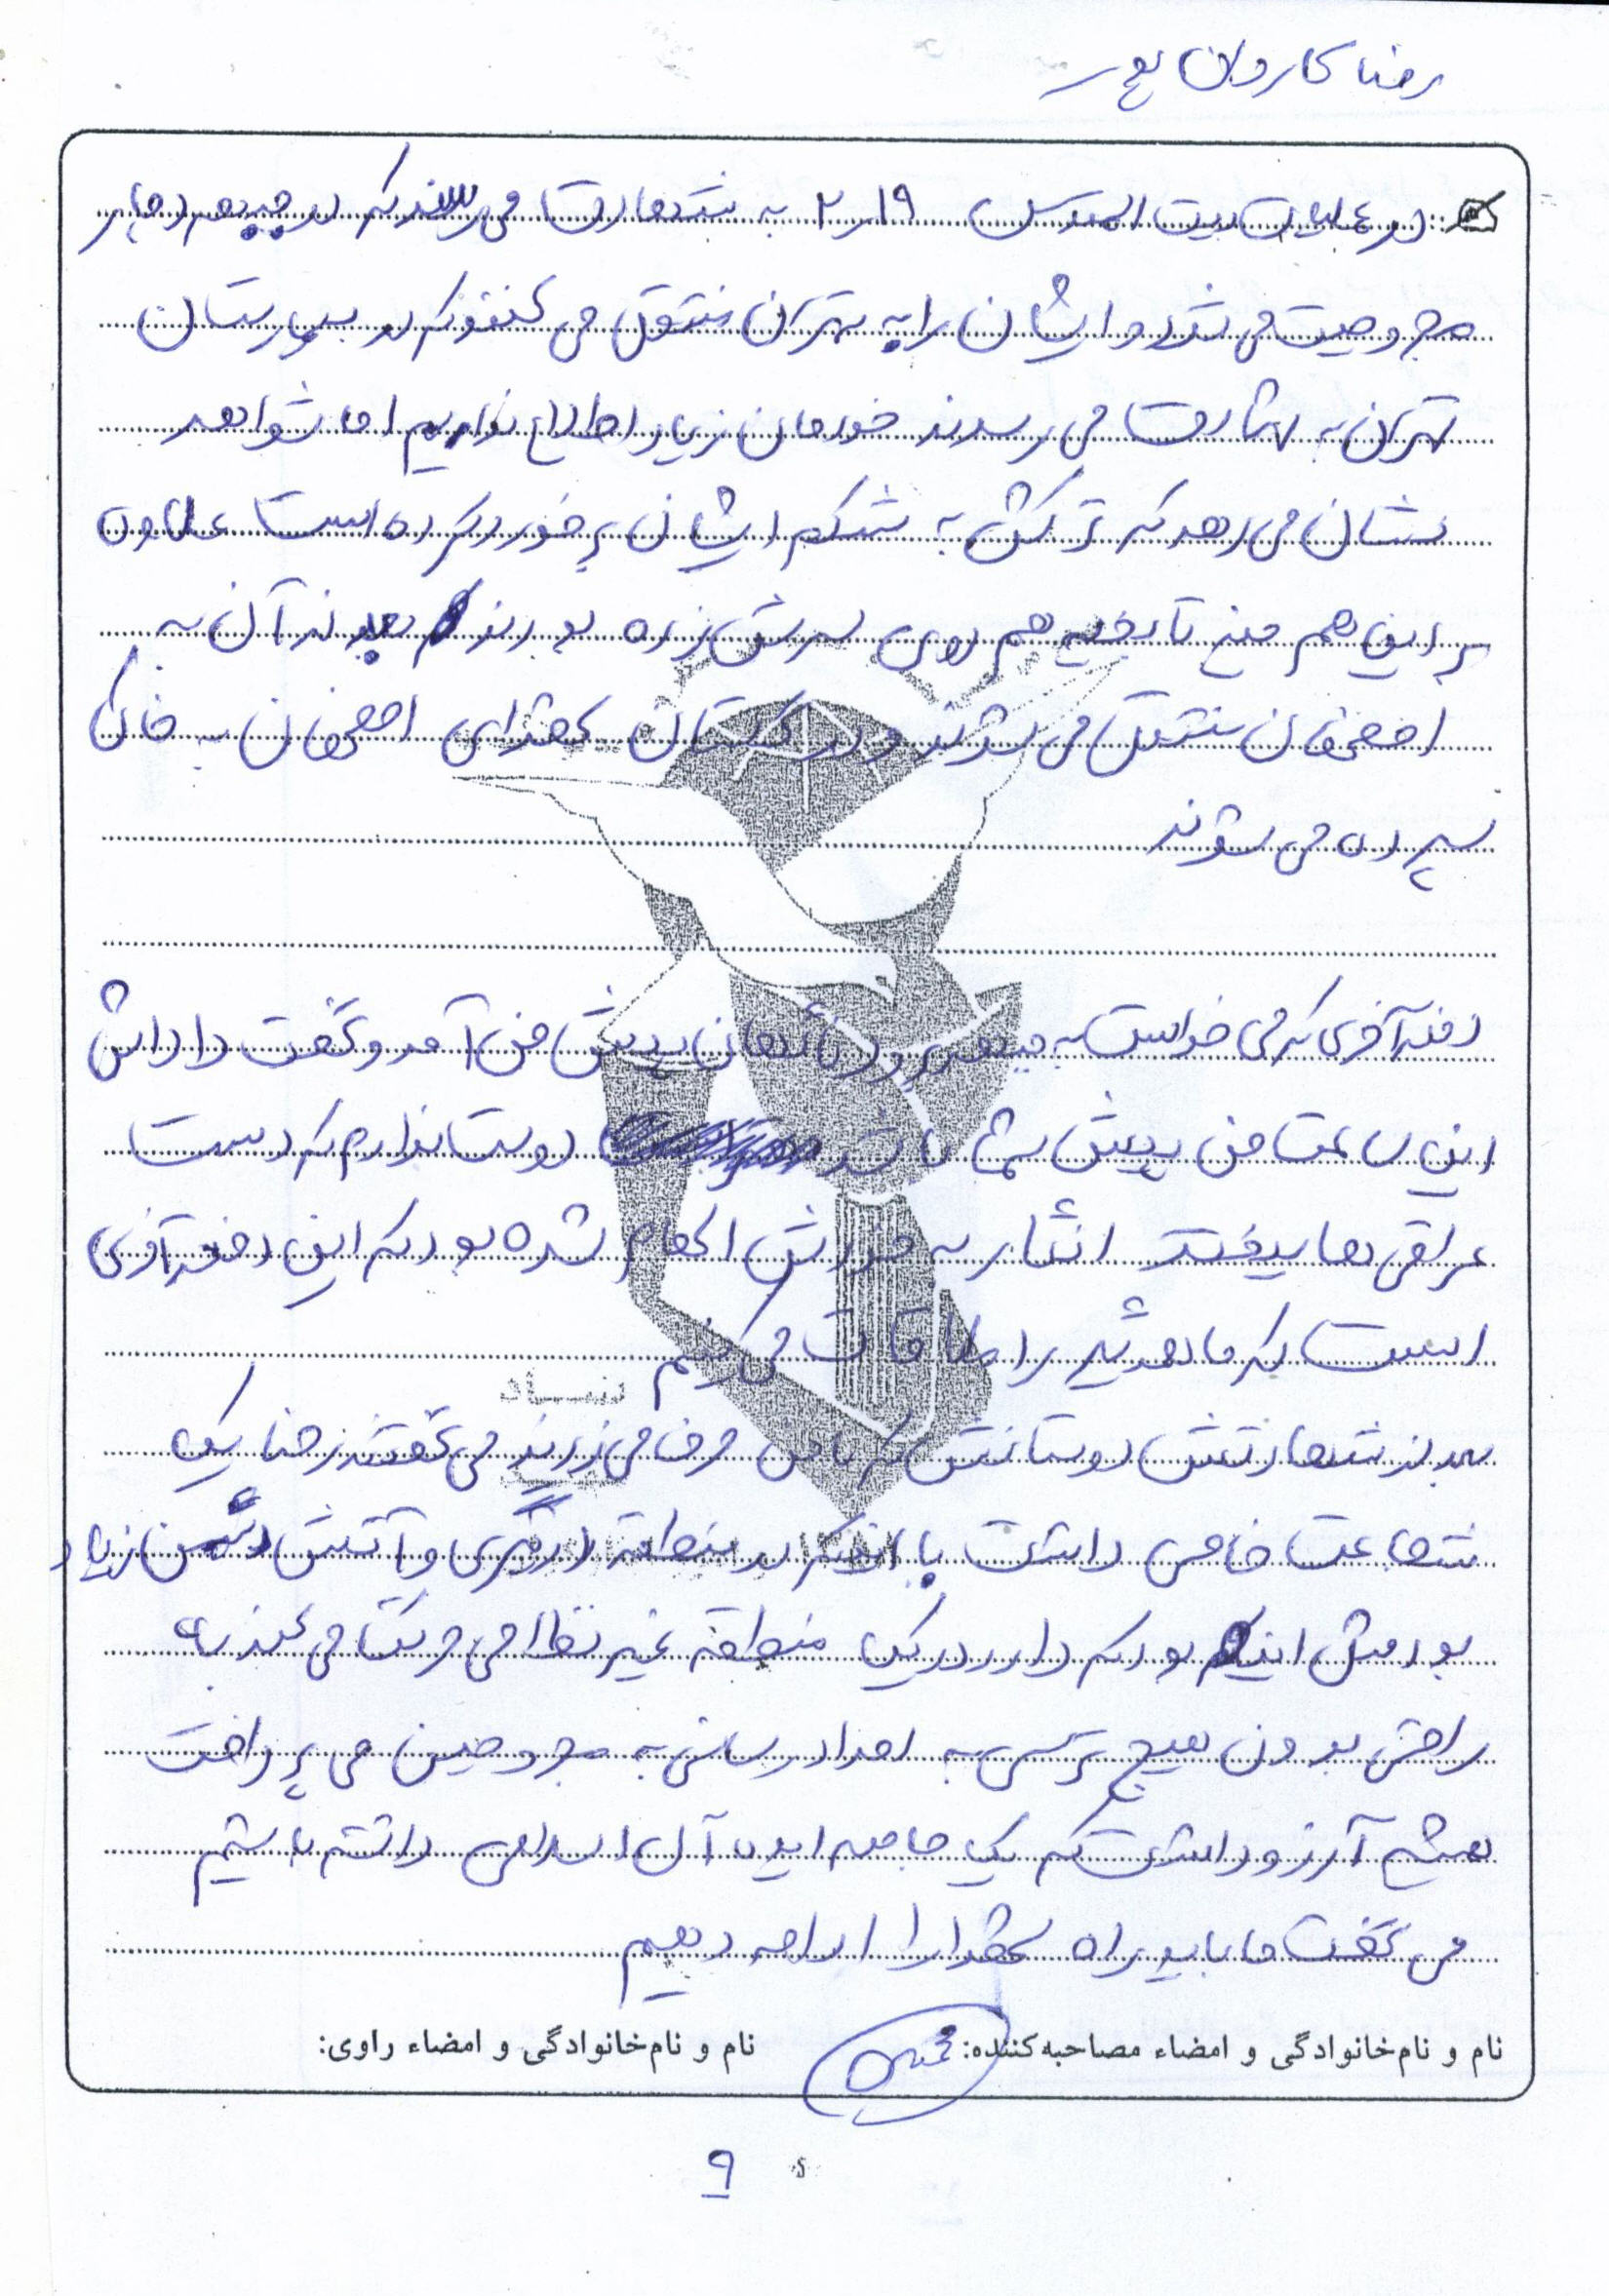 رضا کاروان پور
در عملیات بیت المقدس ۱۹ ر ۲ به شهادت می رسند که در جبهه دچار
مجروحیت می شود و ایشان را به تهران منتقل می کنند که در بیمارستان
تهران به شهادت می رسند خودمان زیاد اطلاع نداریم اما شواهد
نشان می دهد که ترکش به شکم ایشان برخورد کرده است علاوه
بر این هم میخ تا بخیه هم روی سرش زده بودند بعد از آن به
اصفهان منتقل می شوند و در گلستان شهدای اصفهان به خاک
سپرده می شوند
دفعه آخری که می خواست به جبهه برود ناگهان پیش من آمد و گفت داداش
این ساعت من پیش شما باشد دوست ندارم که دست
عراقی ها بیفتد انگار به خودش الهام شده بود که این دفعه آخری
است که ما همدیگر را ملاقات می کنیم
بعد از شهادتش دوستانش که با من حرف می زدند می گفتند رضا یک
شجاعت خاصی داشت با اینکه در منطقه درگیری و آتش دشمن زیاد
بود مثل این بود که دارد در یک منطقه غیر نظامی حرکت می کند با
راحتی بدون هیچ ترسی به امداد رسانی به مجروحین می پرداخت
همیشه آرزو داشت که یک جامعه ایده آل اسلامی داشته باشیم
می گفت ما باید راه شهدا را ادامه دهیم
نام و نام خانوادگی و امضاء مصاحبه کننده: نام و نام خانوادگی و امضاء راوی:
۹